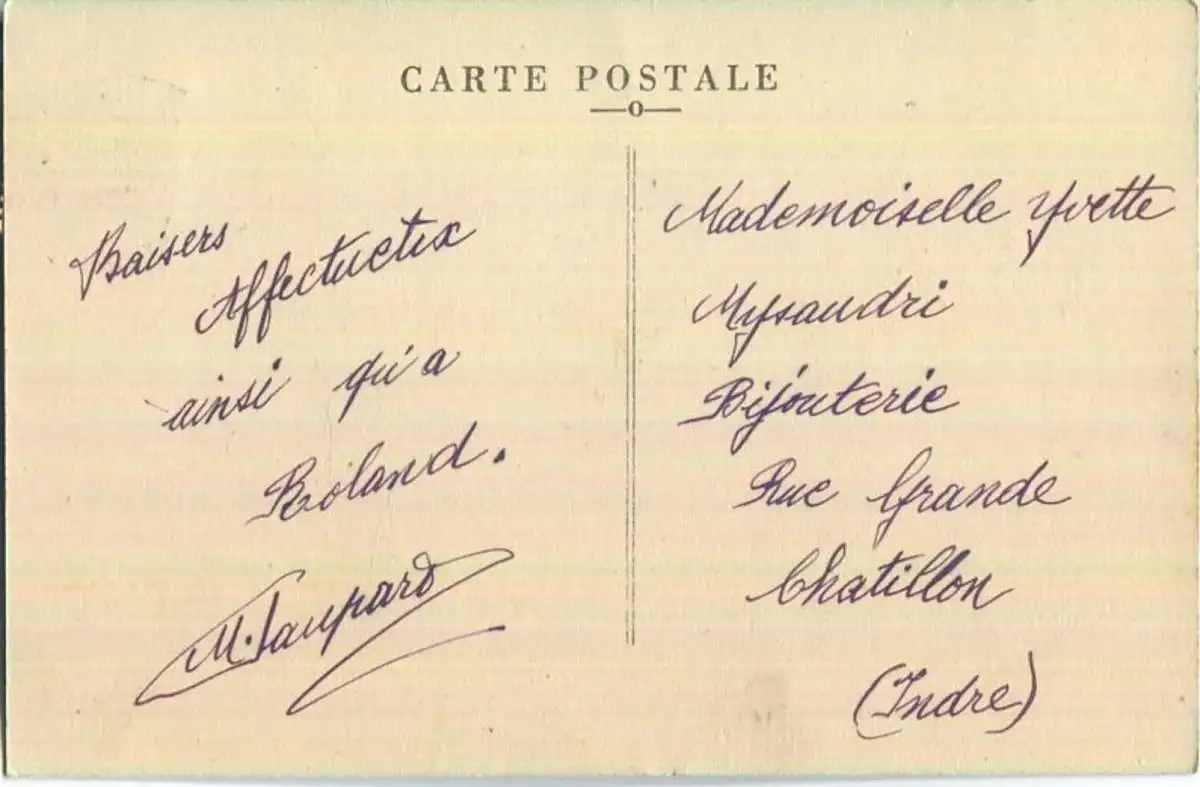 CARTE POSTALE
Baisers
Affectueux
ainsi qu'a
Roland.
M. Gaspard
Mademoiselle Yvette
Mysaudri
Bijouterie
Rue Grande
Chatillon
(Indre)